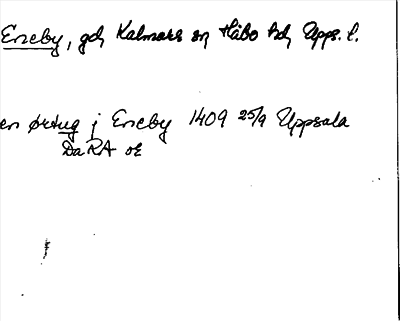 Eneby, gd Kalmars sn Håbo hd Upps. l.
en örtug j Eneby 1409 25/9 Uppsala
DaRA oE